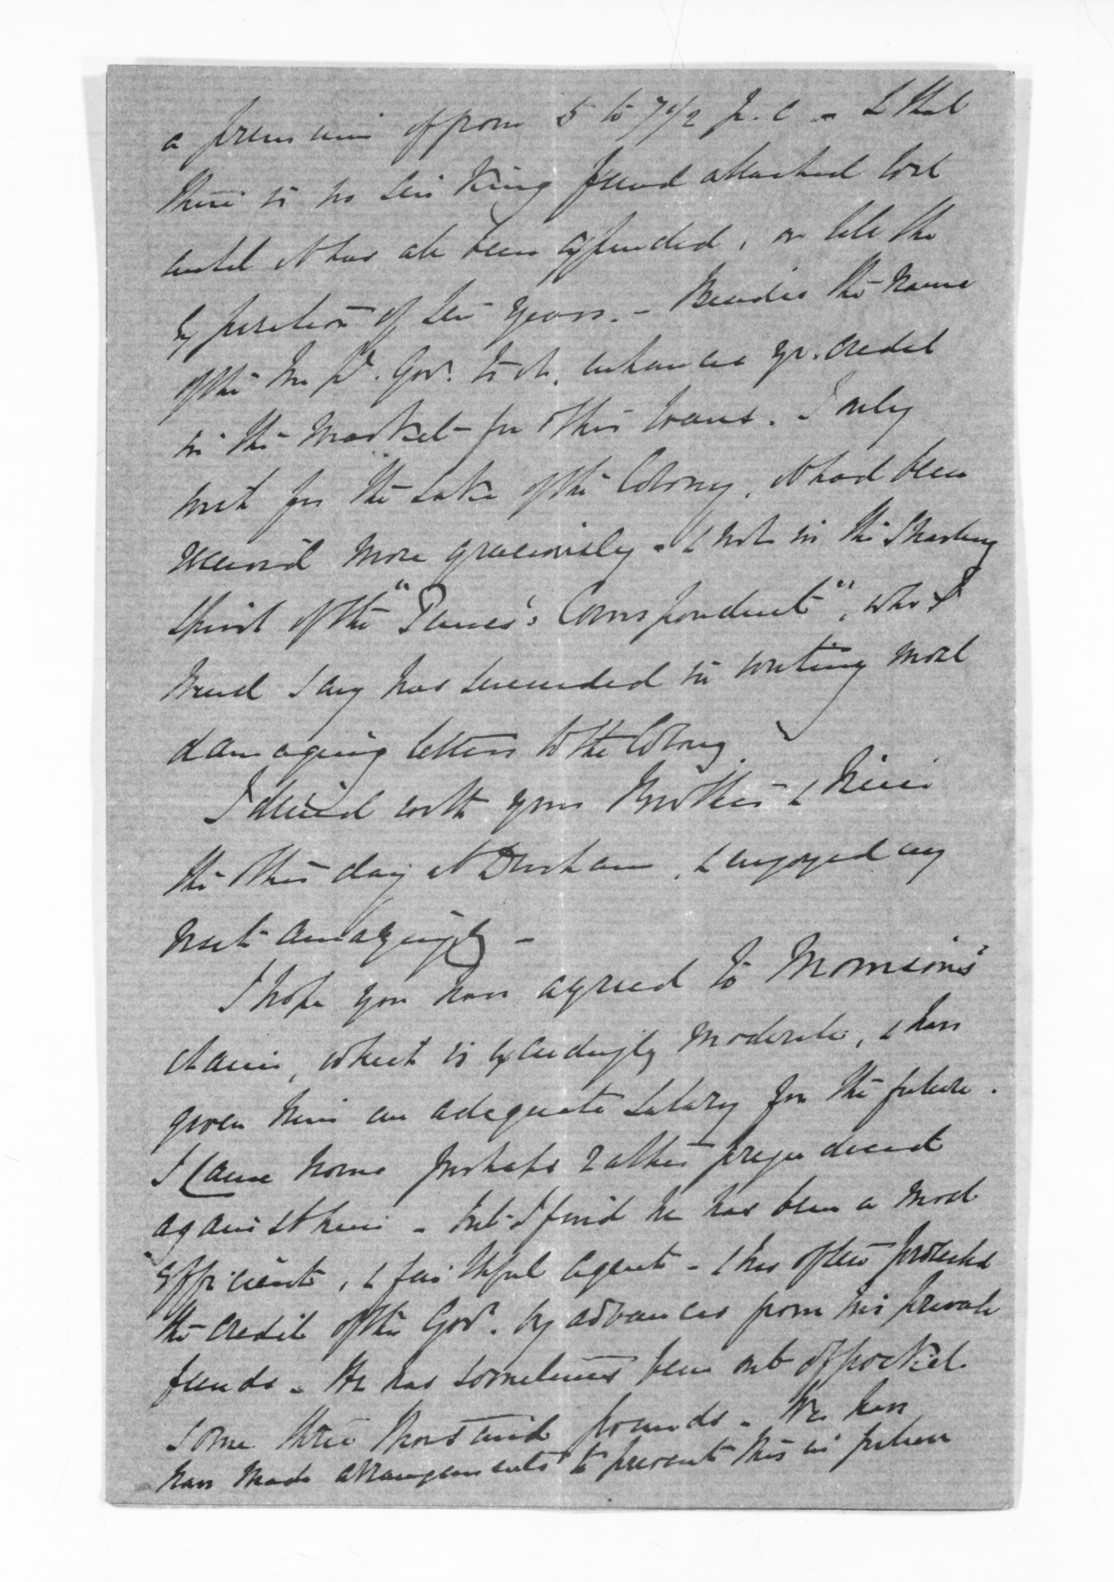 a premium of from 5 to 7 1/2 p. c - & that
there is no sinking fund attached to it
until it has all been expended, or till the
expiration of ten years. - Besides the name
of the Im'l. Gov't. to it, enhances yr. credit
in the market for other loans. I only
wish for the sake of the Colony, it had been
received more graciously - & not in the snarling
spirit of the "Times's Correspondent", who I
must say has succeeded in writing most
damaging letters to the Colony
I dined with your Brother & Niece
the other day at Durham, & enjoyed my
visit amazingly -
I hope you have agreed to Morrison's
claim, which is exceedingly moderate, & have
given him an adequate salary for the future.
I came home perhaps rather prejudiced
against him - but I find he has been a most
efficient, & faithful agent - & has often protected
the credit of the Gov't. by advances from his private
funds - He has sometimes been out of pocket
some three thousand pounds - We have
have made arrangements to prevent this in future